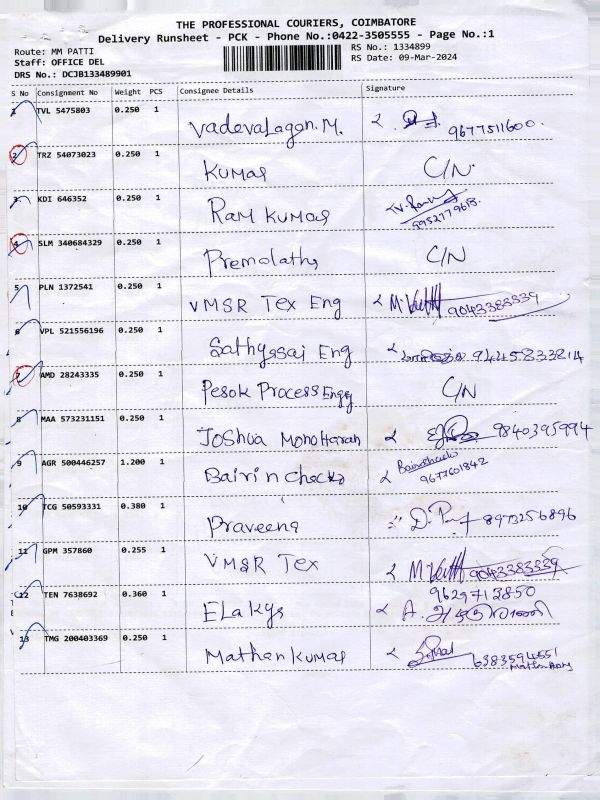 THE PROFESSIONAL COURIERS, COIMBATORE
Delivery Runsheet - PCK - Phone No.:0422-3505555 - Page No.:1
Route: MM PATTI
RS No.: 1334899
Staff: OFFICE DEL
RS Date: 09-Mar-2024
DRS No.: DCJB133489901
S No Consignment No Weight PCS Consignee Details Signature
1 TVL 5475803 0.250 1 Vadevalagan.M. 9677511600
2 TRZ 54073023 0.250 1 Kumar C/N
3 KDI 646352 0.250 1 Ram Kumar
4 SLM 340684329 0.250 1 Premolatha C/N
5 PLN 1372541 0.250 1 VMSR Tex Eng 9043383339
6 VPL 521556196 0.250 1 Sathyssai Eng 9445833814
7 AMD 28243335 0.250 1 Pesok Process Engg C/N
8 MAA 573231151 0.250 1 Joshua Monoharan 9840395994
9 AGR 500446257 1.200 1 9677601842
10 TCG 50593331 0.380 1 Praveena 8973256896
11 GPM 357860 0.255 1 VMSR Tex 9043383339
12 TEN 7638692 0.360 1 Elakya 9629713850
13 TMG 200403369 0.250 1 Mathan Kumar 6383594551